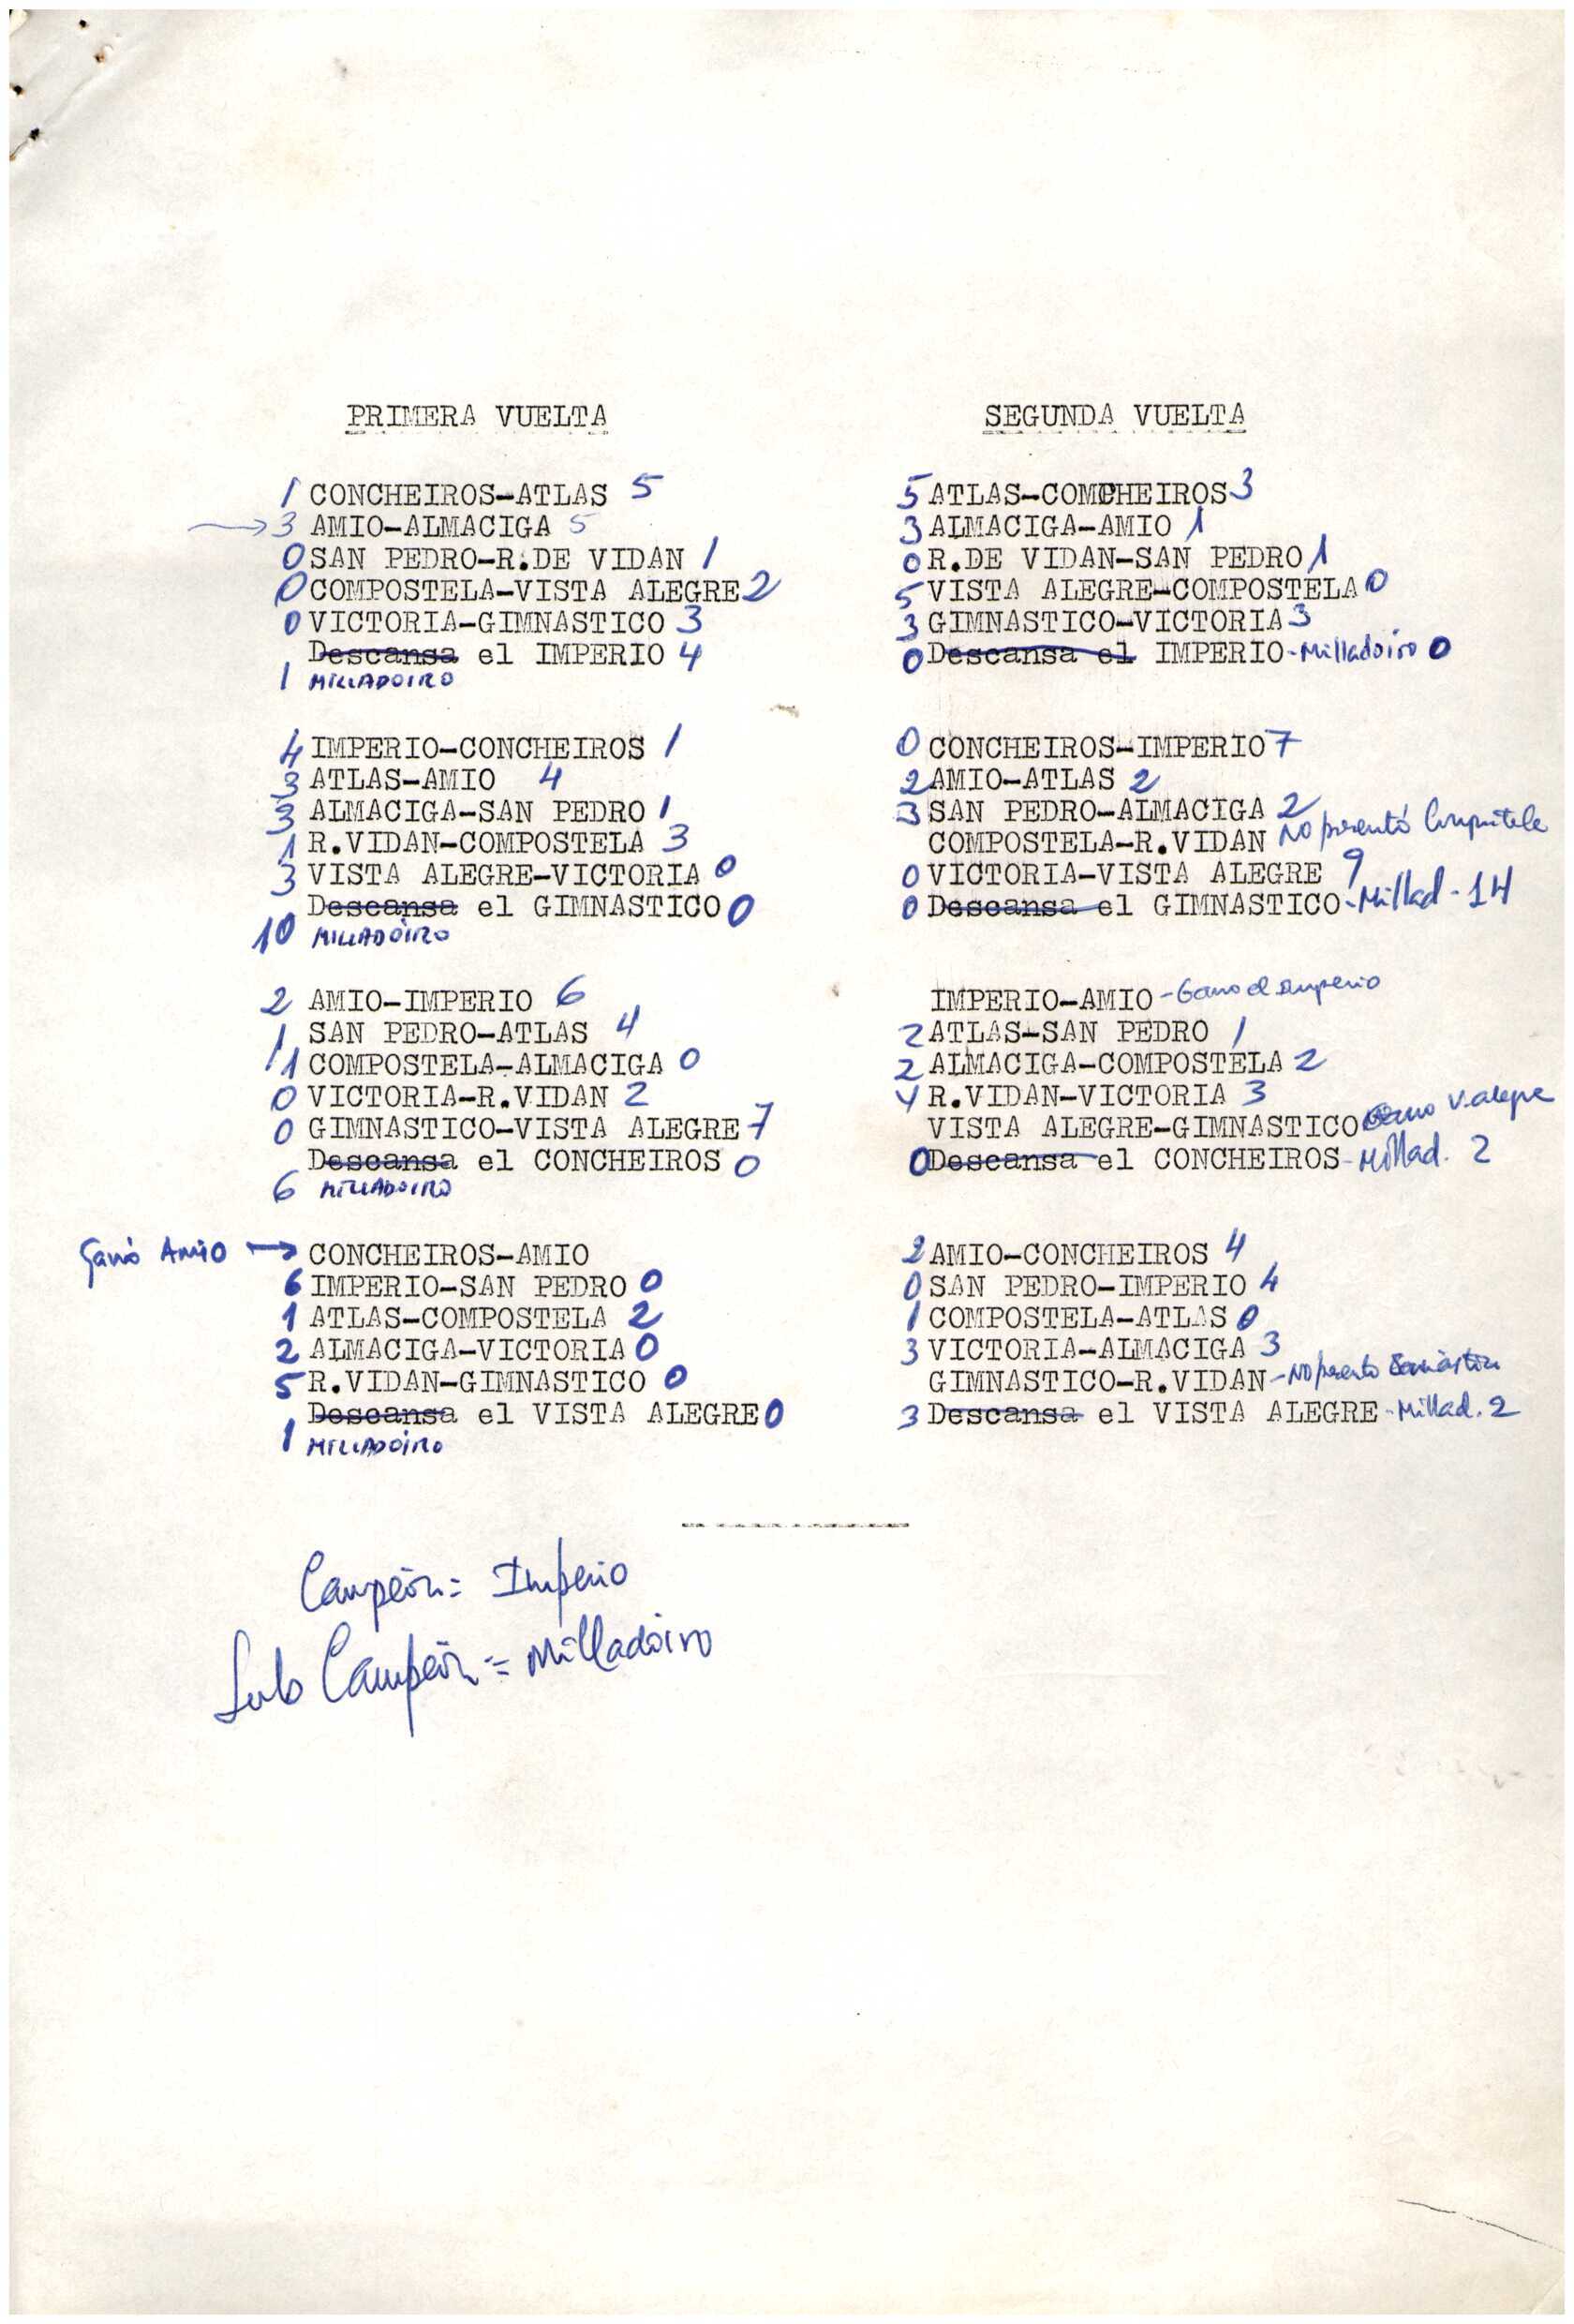 PRIMERA VUELTA
1 CONCHEIROS-ATLAS 5
→ 3 AMIO-ALMACIGA 5
0 SAN PEDRO-R.DE VIDAN 1
0 COMPOSTELA-VISTA ALEGRE 2
0 VICTORIA-GIMNASTICO 3
Descansa el IMPERIO 4
1 MILLADOIRO
4 IMPERIO-CONCHEIROS 1
3 ATLAS-AMIO 4
3 ALMACIGA-SAN PEDRO 1
1 R.VIDAN-COMPOSTELA 3
3 VISTA ALEGRE-VICTORIA 0
Descansa el GIMNASTICO 0
10 MILLADOIRO
2 AMIO-IMPERIO 6
1 SAN PEDRO-ATLAS 4
11 COMPOSTELA-ALMACIGA 0
0 VICTORIA-R.VIDAN 2
0 GIMNASTICO-VISTA ALEGRE 7
Descansa el CONCHEIROS 0
6 MILLADOIRO
Ganó Amio → CONCHEIROS-AMIO
6 IMPERIO-SAN PEDRO 0
1 ATLAS-COMPOSTELA 2
2 ALMACIGA-VICTORIA 0
5 R.VIDAN-GIMNASTICO 0
Descansa el VISTA ALEGRE 0
1 MILLADOIRO
SEGUNDA VUELTA
5 ATLAS-COMCHEIROS 3
3 ALMACIGA-AMIO 1
0 R.DE VIDAN-SAN PEDRO 1
5 VISTA ALEGRE-COMPOSTELA 0
3 GIMNASTICO-VICTORIA 3
0 Descansa el IMPERIO-Milladoiro 0
0 CONCHEIROS-IMPERIO 7
2 AMIO-ATLAS 2
3 SAN PEDRO-ALMACIGA 2
COMPOSTELA-R.VIDAN NO presentó Compostela
0 VICTORIA-VISTA ALEGRE 9
0 Descansa el GIMNASTICO-Millad-14
IMPERIO-AMIO-Gano el imperio
2 ATLAS-SAN PEDRO 1
2 ALMACIGA-COMPOSTELA 2
4 R.VIDAN-VICTORIA 3
VISTA ALEGRE-GIMNASTICO Gano V. alegre
0 Descansa el CONCHEIROS-Millad. 2
2 AMIO-CONCHEIROS 4
0 SAN PEDRO-IMPERIO 4
1 COMPOSTELA-ATLAS 0
3 VICTORIA-ALMACIGA 3
GIMNASTICO-R.VIDAN-NO presento
3 Descansa el VISTA ALEGRE-Millad. 2
Campeón= Imperio
Sub Campeón= Milladoiro